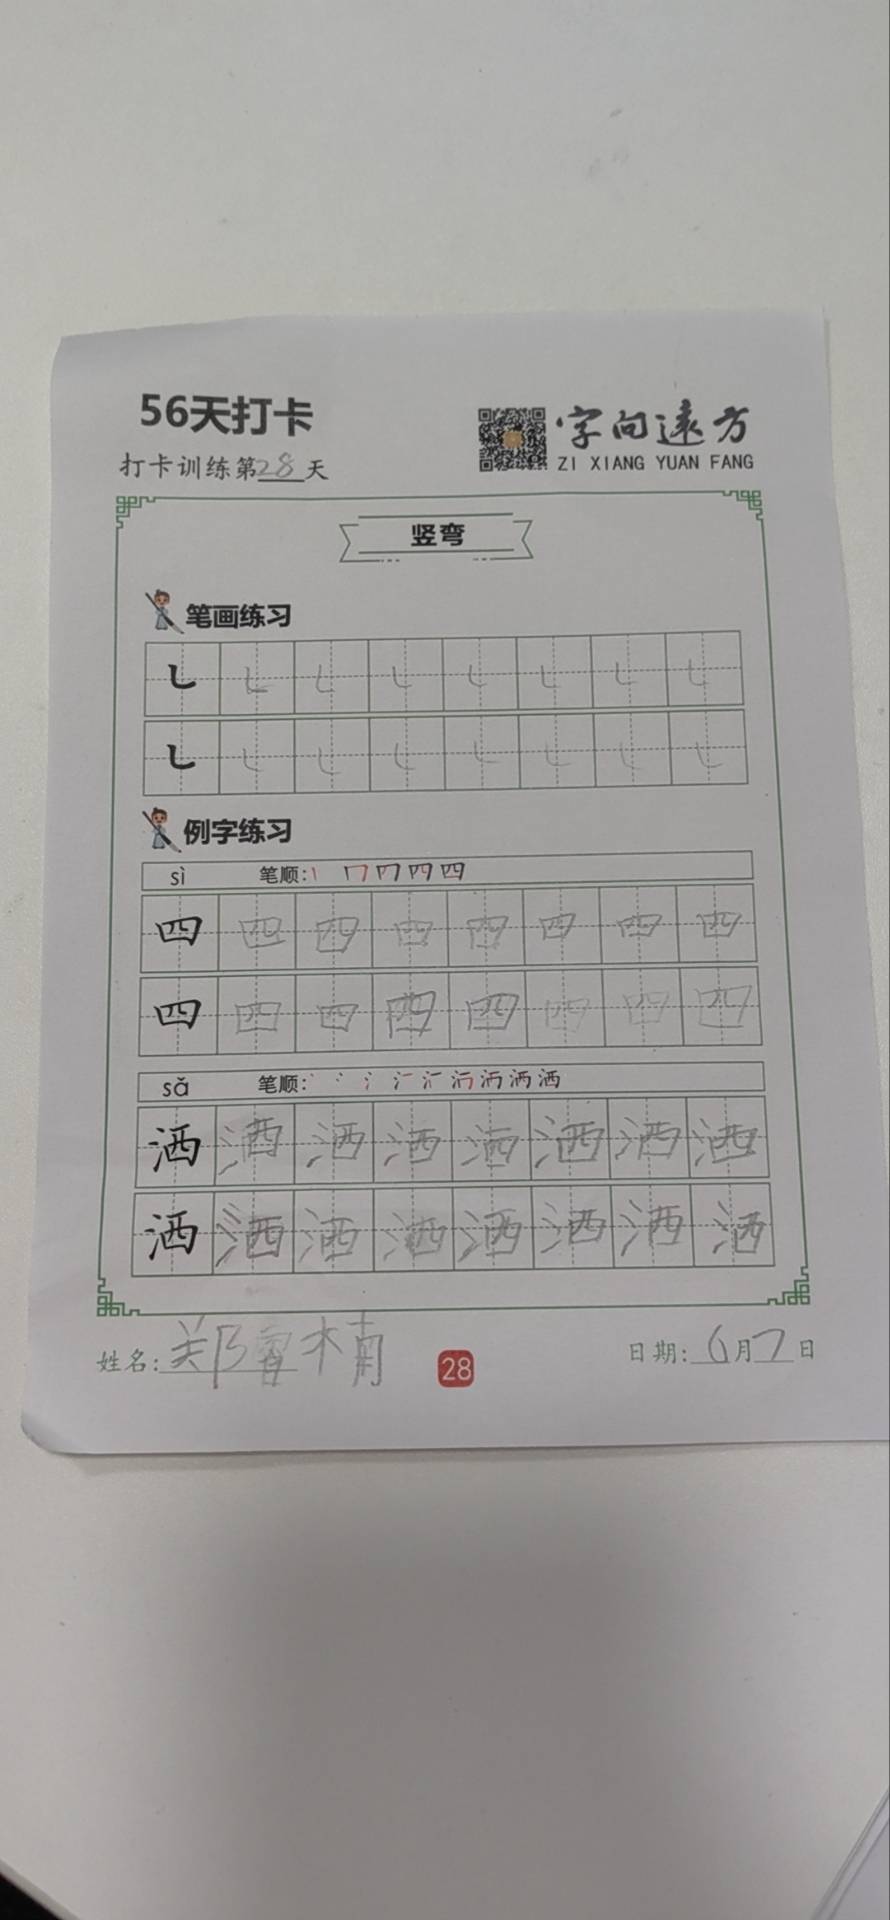 56天打卡
字向远方
打卡训练第28天
ZI XIANG YUAN FANG
竖弯
笔画练习
㇄ ㇄ ㇄ ㇄ ㇄ ㇄ ㇄ ㇄
㇄ ㇄ ㇄ ㇄ ㇄ ㇄ ㇄ ㇄
例字练习
sì 笔顺:
四 四 四 四 四 四 四 四
四 四 四 四 四 四 四 四
sǎ 笔顺:
洒 洒 洒 洒 洒 洒 洒 洒
洒 洒 洒 洒 洒 洒 洒 洒
姓名:郑睿楠
28
日期:6月7日